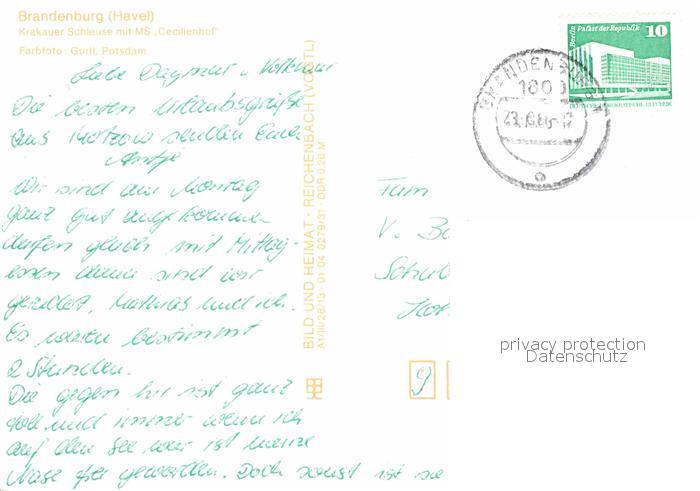 Brandenburg (Havel)
Krakauer Schleuse mit MS „Cecilienhof"
Farbfoto: Gurtl, Potsdam
Liebe Dagmar u. Volkmar
Die besten Urlaubsgrüße
aus senden Euch
Antje
Wir sind am Montag
ganz gut angekommen
durften gleich mit Mittag-
essen dann sind wir
gezeltet, Mathias und ich.
Es waren bestimmt
2 Stunden.
Die gegen hir ist ganz
toll und immer wenn ich
auf den See war ist meine
Nase frei geworden. Doch sonst ist sie
BILD UND HEIMAT · REICHENBACH (VOGTL)
A1/III/26/13 01 04 0279/31 DDR 0,20 M
Berlin Palast der Republik
10
DEUTSCHE DEMOKRATISCHE REPUBLIK
BRANDENBURG
1800
Fam
V. Bo
9
privacy protection
Datenschutz